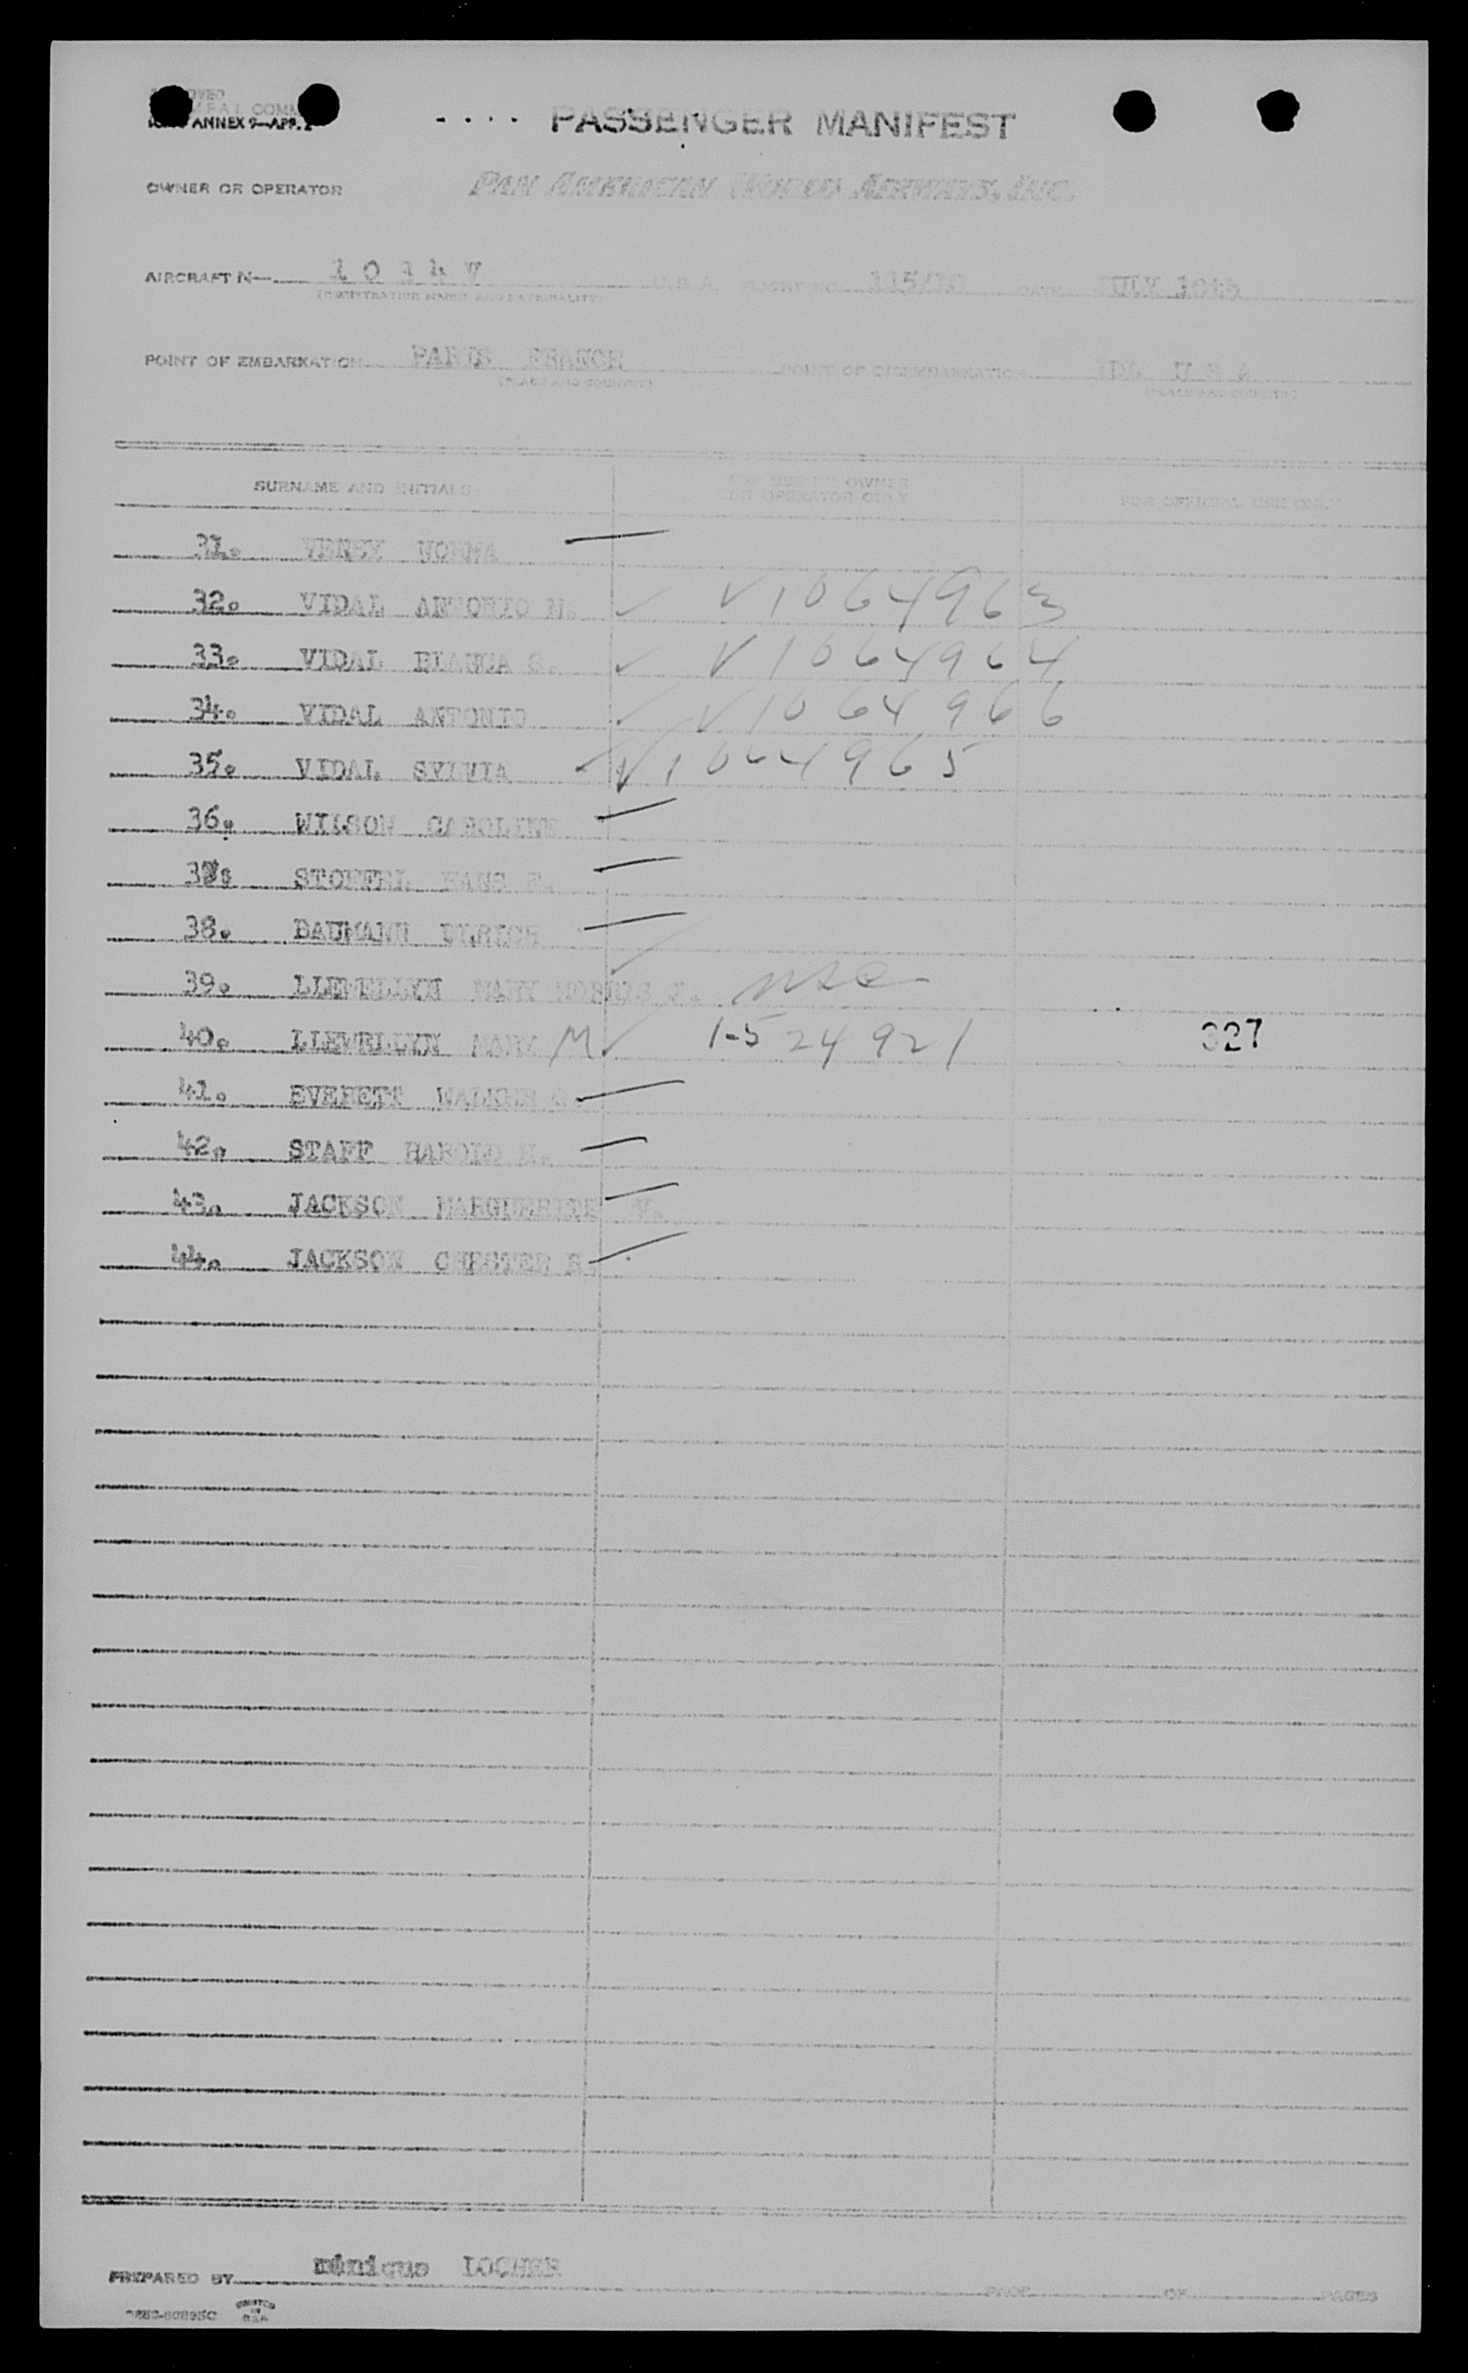 ANNEX 9—APP. 2
PASSENGER MANIFEST
OWNER OR OPERATOR PAN AMERICAN WORLD AIRWAYS, INC.
AIRCRAFT N— 1 0 1 4 V U.S.A. FLIGHT NO. 115/10 DATE JULY
(REGISTRATION MARKS AND NATIONALITY)
POINT OF EMBARKATION PARIS FRANCE POINT OF DISEMBARKATION U S A
(PLACE AND COUNTRY) (PLACE AND COUNTRY)
SURNAME AND INITIALS FOR USE BY OWNER OR OPERATOR ONLY FOR OFFICIAL USE ONLY
31. NORMA —
32. VIDAL ANTONIO M. ✓ V1064963
33. VIDAL BIANCA S. ✓ V1064964
34. VIDAL ANTONIO ✓ V1064966
35. VIDAL SYLVIA ✓ V1064965
36. WILSON CAROLINE —
37. HANS —
38. BAUMANN ULRICH —
39. LLEWELLYN MARY MORRIS J. ✓ usc
40. LLEWELLYN MARY M ✓ 1-524921 327
41. EVERETT WALKER G. —
42. STAFF HAROLD M. —
43. JACKSON MARGUERITE V. —
44. JACKSON CHESTER R. —
PREPARED BY LOCHER PAGE OF PAGES
PRINTED IN USA